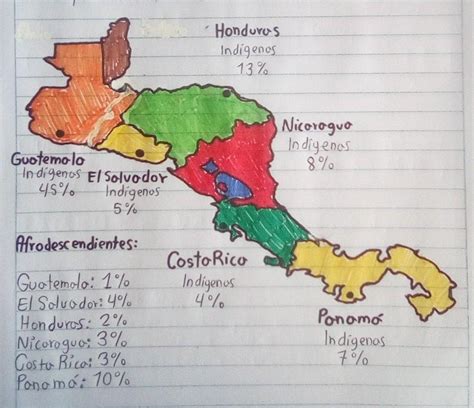 Honduras
Indígenos
13%
Nicaragua
Indígenos
8%
Guatemala
Indígenos
45%
El Salvador
Indígenos
5%
Costa Rica
Indígenos
4%
Panamá
Indígenos
7%
Afrodescendientes:
Guatemala: 1%
El Salvador: 4%
Honduras: 2%
Nicaragua: 3%
Costa Rica: 3%
Panamá: 10%